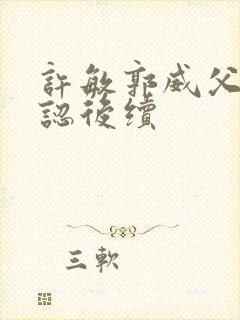 許敏郭威父
認後續
三軟